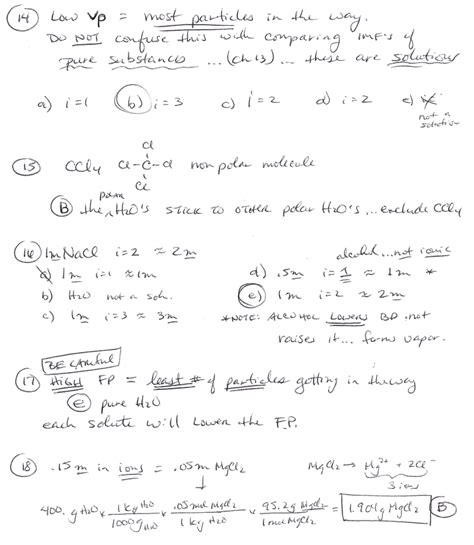 (14) Low Vp = most particles in the way.
DO NOT confuse this with comparing IMF's of
pure substances ... (ch 13) ... these are solutions
a) i=1 b) i=3 c) i=2 d) i=2 e) i
not a
solution
Cl
(15) CCl4 Cl-C-Cl nonpolar molecule
Cl
polar
(B) the H2O's stick to other polar H2O's ... exclude CCl4
(16) 1m NaCl i=2 ≈ 2m alcohol...not ionic
a) 1m i=1 ≈ 1m d) .5m i=1 ≈ 1m *
b) H2O not a soln. (e) 1m i=2 ≈ 2m
c) 1m i=3 ≈ 3m *NOTE: ALCOHOL Lowers BP, not
raises it... forms vapor.
BE CAREFUL
(17) HIGH FP = least # of particles getting in the way
(e) pure H2O
each solute will lower the F.P.
(18) .15m in ions = .05m MgCl2 MgCl2 → Mg2+ + 2Cl-
↓ 3 ions
400. g H2O x 1 kg H2O / 1000g H2O x .05 mol MgCl2 / 1 kg H2O x 95.2g MgCl2 / 1 mol MgCl2 = 1.904g MgCl2 (B)